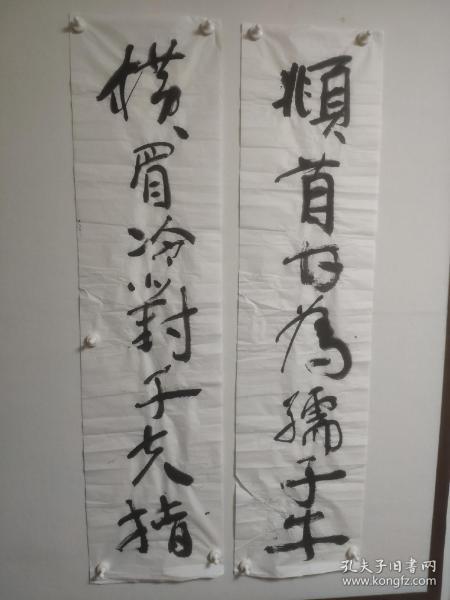 橫眉冷對千夫指
頫首甘為孺子牛
孔夫子旧书网
www.kongfz.com